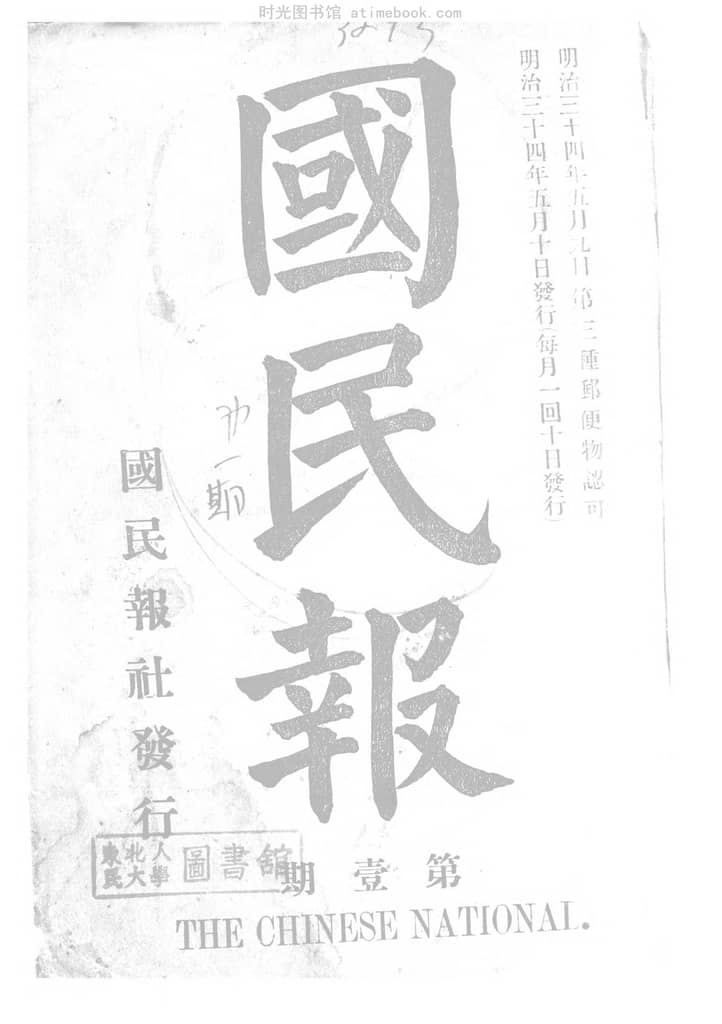 时光图书馆 - atimebook.com -
明治三十四年五月九日第三種郵便物認可
明治三十四年五月十日發行(每月一回十日發行)
國民報
國民報社發行
東北人民大學
圖書館
第壹期
THE CHINESE NATIONAL.